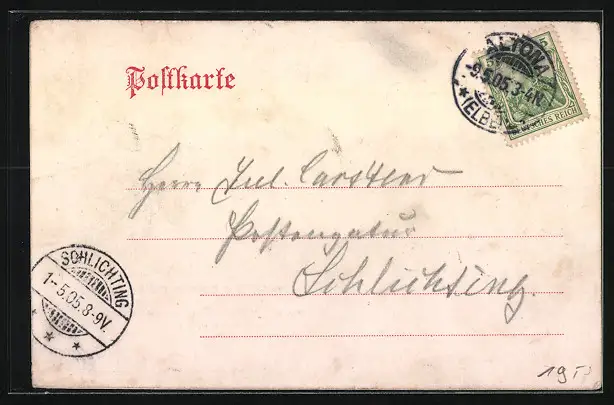 Postkarte
ALTONA
9.5.05.3-4N.
* (ELBE)
DEUTSCHES REICH
Herrn Jul. Carstens
Postagentur
Schlichting.
SCHLICHTING
1-5.05.8-9V.
* * *